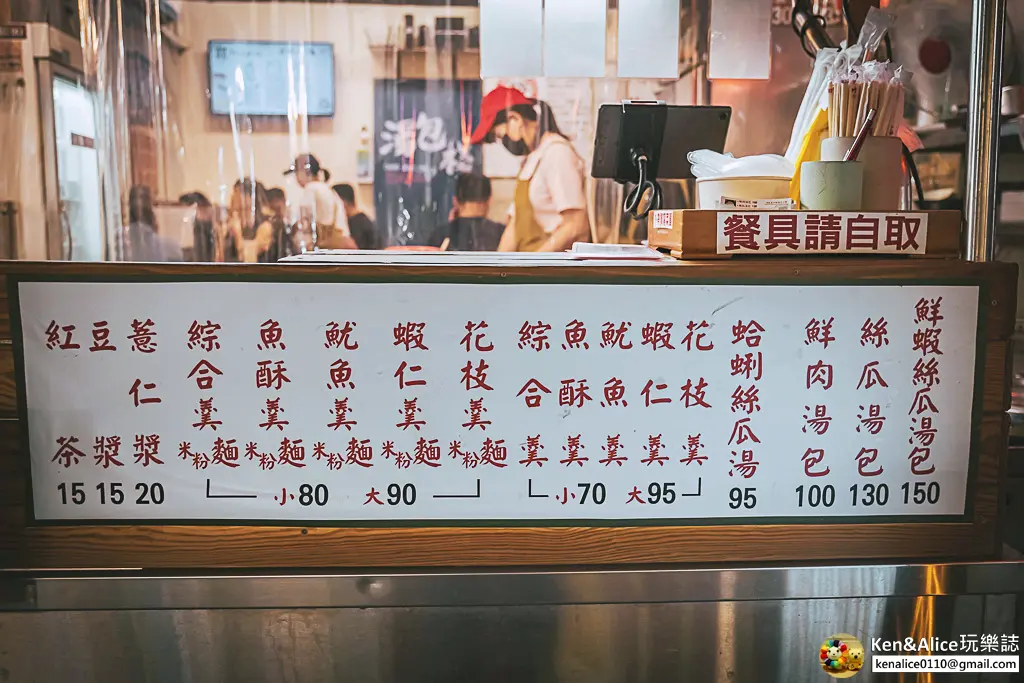 湯包
30
餐具請自取
鮮蝦絲瓜湯包 150
絲瓜湯包 130
鮮肉湯包 100
蛤蜊絲瓜湯 95
花枝羹
蝦仁羹
魷魚羹
魚酥羹
綜合羹
小70 大95
花枝羹米粉麵
蝦仁羹米粉麵
魷魚羹米粉麵
魚酥羹米粉麵
綜合羹米粉麵
小80 大90
薏仁漿 20
豆漿 15
紅茶 15
Ken&Alice玩樂誌
kenalice0110@gmail.com